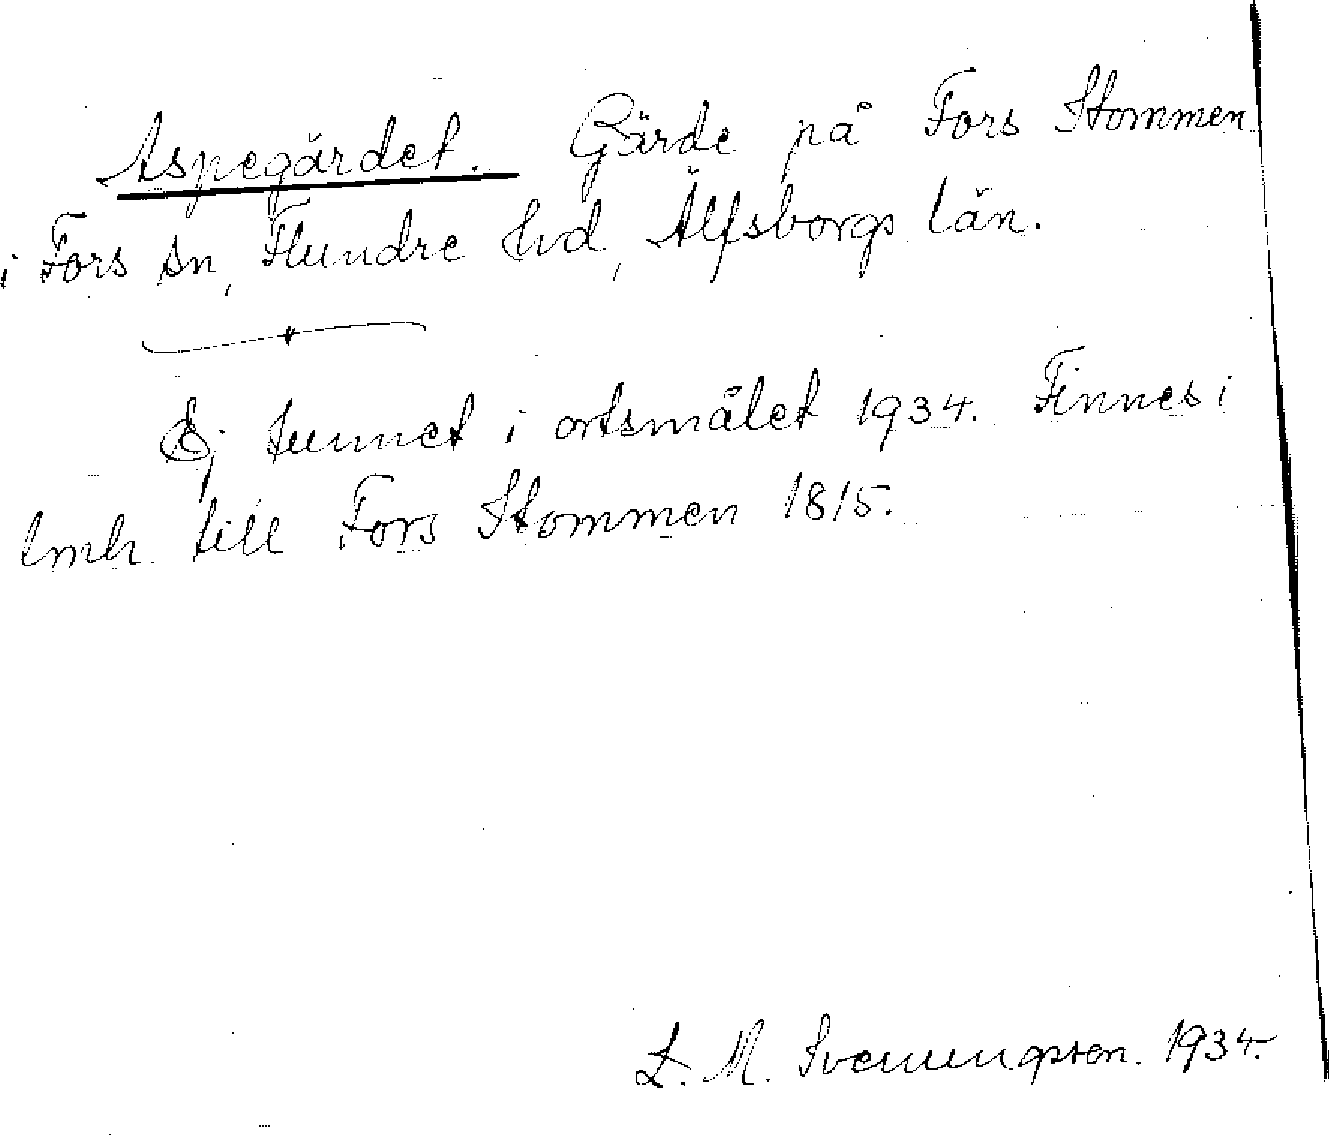 Aspegärdet. Gärde på Fors Stommen
i Fors sn, Flundre hd, Älfsborgs län.
Ej funnet i ortsmålet 1934. Finnes i
lmh till Fors Stommen 1815.
L. M. Svenungsson. 1934.